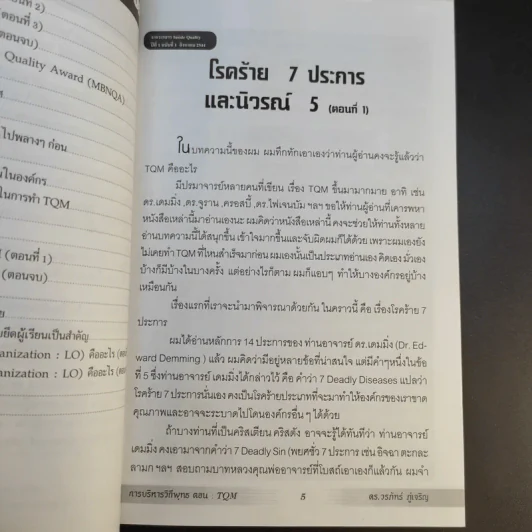 อนที่ 2)
(ตอนที่ 3)
(ตอนจบ)
Quality Award (MBNQA)
ไปพลางๆ ก่อน
นในองค์กร
ในการทำ TQM
(ตอนที่ 1)
(ตอนจบ)
ยึดผู้เรียนเป็นสำคัญ
anization : LO) คืออะไร
anization : LO) คืออะไร
โรคร้าย 7 ประการ
และนิวรณ์ 5 (ตอนที่ 1)
ในบทความนี้ของผม ผมทึกทักเอาเองว่าท่านผู้อ่านคงจะรู้แล้วว่า
TQM คืออะไร
มีปรมาจารย์หลายคนที่เขียน เรื่อง TQM ขึ้นมามากมาย อาทิ เช่น
ดร.เดมมิ่ง ,ดร.จูราน ,ครอสบี้ ,ดร.ไฟเจนบัม ฯลฯ ขอให้ท่านผู้อ่านที่เคารพหา
หนังสือเหล่านี้มาอ่านเองนะ ผมคิดว่าหนังสือเหล่านี้ คงจะช่วยให้ท่านทั้งหลาย
อ่านบทความนี้ได้สนุกขึ้น เข้าใจมากขึ้นและจับผิดผมก็ได้ด้วย เพราะผมเองยัง
ไม่เคยทำ TQM ที่ไหนสำเร็จมาก่อน ผมเองนั้นเป็นประเภทอ่านเอง คิดเอง มั่วเอง
บ้างก็มีบ้างในบางครั้ง แต่อย่างไรก็ตาม ผมก็แอบๆ ทำให้บางองค์กรอยู่บ้าง
เหมือนกัน
เรื่องแรกที่เราจะนำมาพิจารณาด้วยกัน ในคราวนี้ คือ เรื่องโรคร้าย 7
ประการ
ผมได้อ่านหลักการ 14 ประการของ ท่านอาจารย์ ดร.เดมมิ่ง (Dr. Ed-
ward Demming ) แล้ว ผมคิดว่ามีอยู่หลายข้อที่น่าสนใจ แต่มีคำๆหนึ่งในข้อ
ที่ 5 ซึ่งท่านอาจารย์ เดมมิ่งได้กล่าวไว้ คือ คำว่า 7 Deadly Diseases แปลว่า
โรคร้าย 7 ประการนั่นเอง คงเป็นโรคร้ายประเภทที่จะมาทำให้องค์กรของเราขาด
คุณภาพและอาจจะระบาดไปโดนองค์กรอื่น ๆ ได้ด้วย
ถ้าบางท่านที่เป็นคริสเตียน คริสตัง อาจจะรู้ได้ทันทีว่า ท่านอาจารย์
เดมมิ่ง คงเอามาจากคำว่า 7 Deadly Sin (พยศชั่ว 7 ประการ เช่น อิจฉา ตะกละ
ลามก ฯลฯ สอบถามบาทหลวงคุณพ่ออาจารย์ที่โบสถ์เอาเองก็แล้วกัน ผมจำ
การบริหารวิถีพุทธ ตอน : TQM 5 ดร.วรภัทร์ ภู่เจริญ